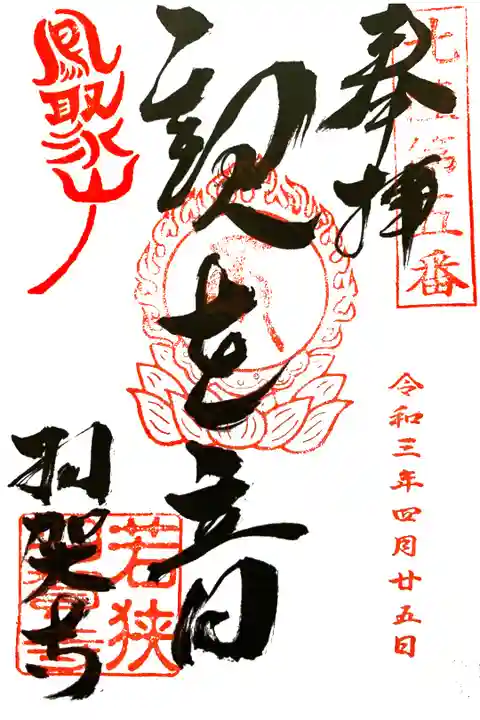 北陸第五番
奉拝
令和三年四月廿五日
観世音
鳳聚山
羽賀寺
若狭
羽賀寺